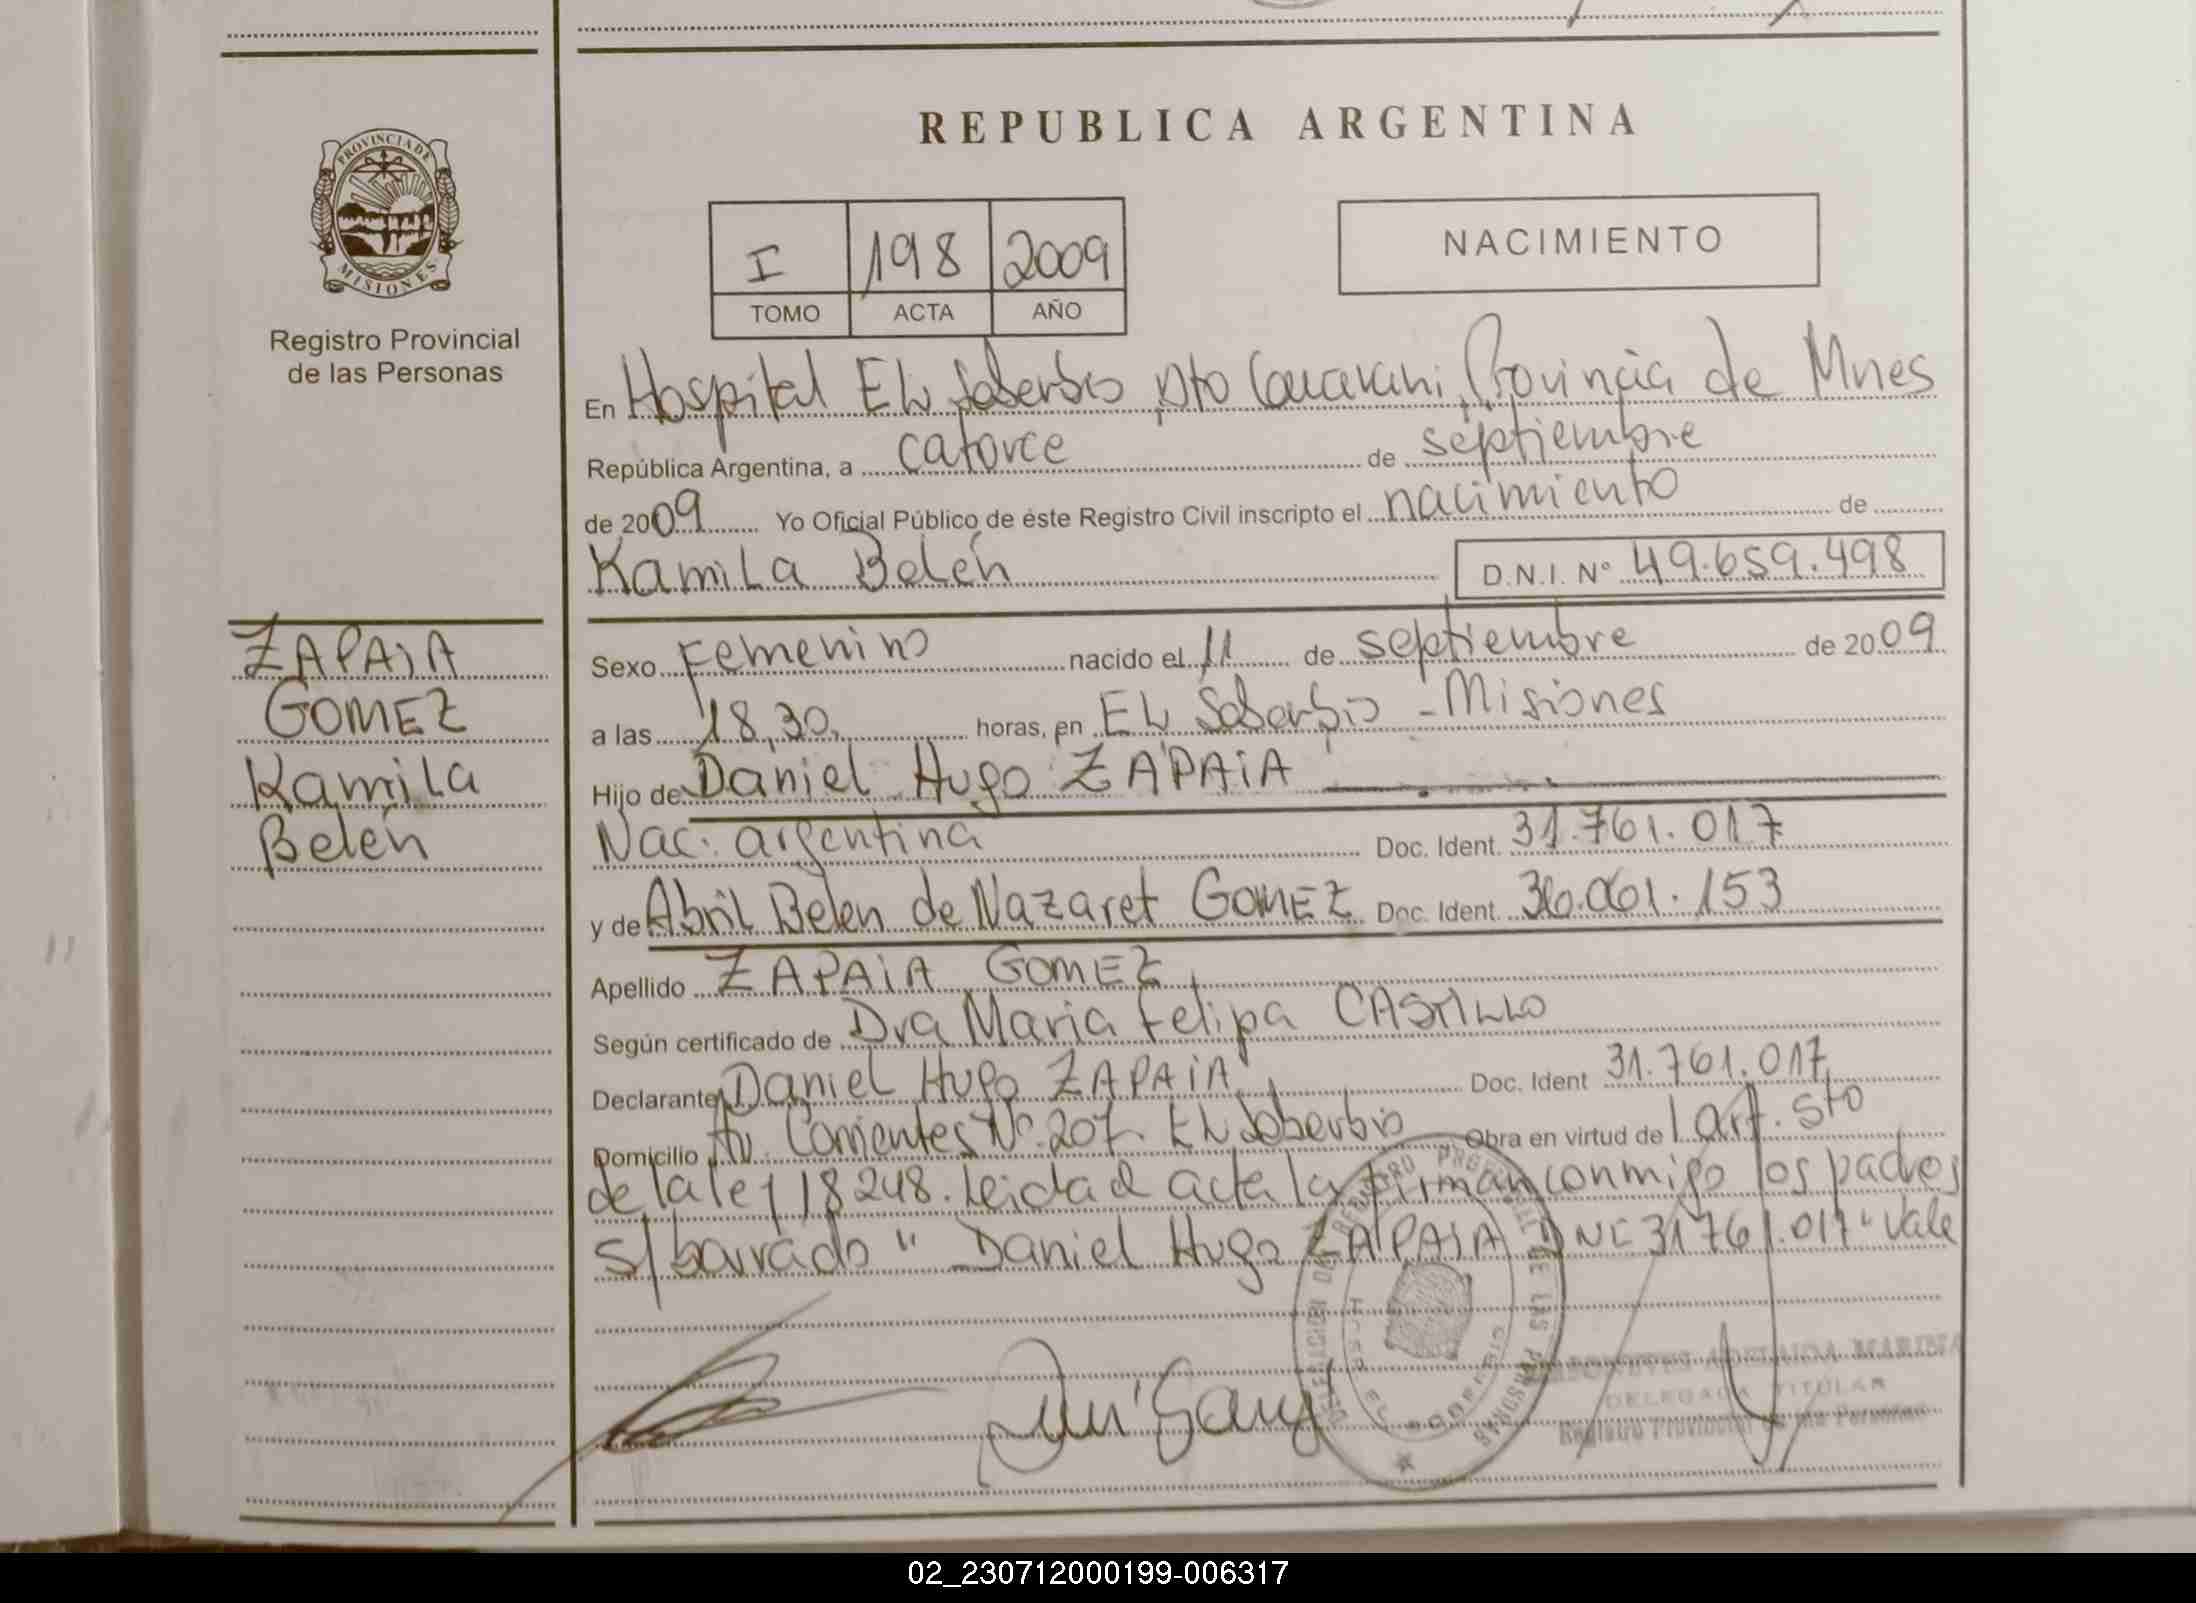 REPUBLICA ARGENTINA
PROVINCIA DE
MISIONES
Registro Provincial
de las Personas
I 198 2009
TOMO ACTA AÑO
NACIMIENTO
En Hospital EL Soberbio, Dto Guarani, Provincia de Mnes
República Argentina, a catorce de septiembre
de 2009 Yo Oficial Público de éste Registro Civil inscripto el nacimiento de
Kamila Belén D.N.I. Nº 49.659.498
ZAPAIA
GOMEZ
Kamila
Belén
Sexo Femenino nacido el 11 de septiembre de 2009
a las 18,30 horas, en EL Soberbio - Misiones
Hijo de Daniel Hugo ZAPAIA
Nac. argentina Doc. Ident. 31.761.017
y de Abril Belen de Nazaret GOMEZ Doc. Ident. 36.061.153
Apellido ZAPAIA GOMEZ
Según certificado de Dra Maria Felipa CASTILLO
Declarante Daniel Hugo ZAPAIA Doc. Ident 31.761.017
Domicilio Av. Corrientes Nº 207. EL Soberbio Obra en virtud de l art. 5to
de la ley 18248. Leida el acta la firman conmigo los padres
s/barrado " Daniel Hugo ZAPAIA DNI 31761.017" vale
ADELAIDA MARINA
DELEGADA TITULAR
Registro Provincial de las Personas
02_230712000199-006317